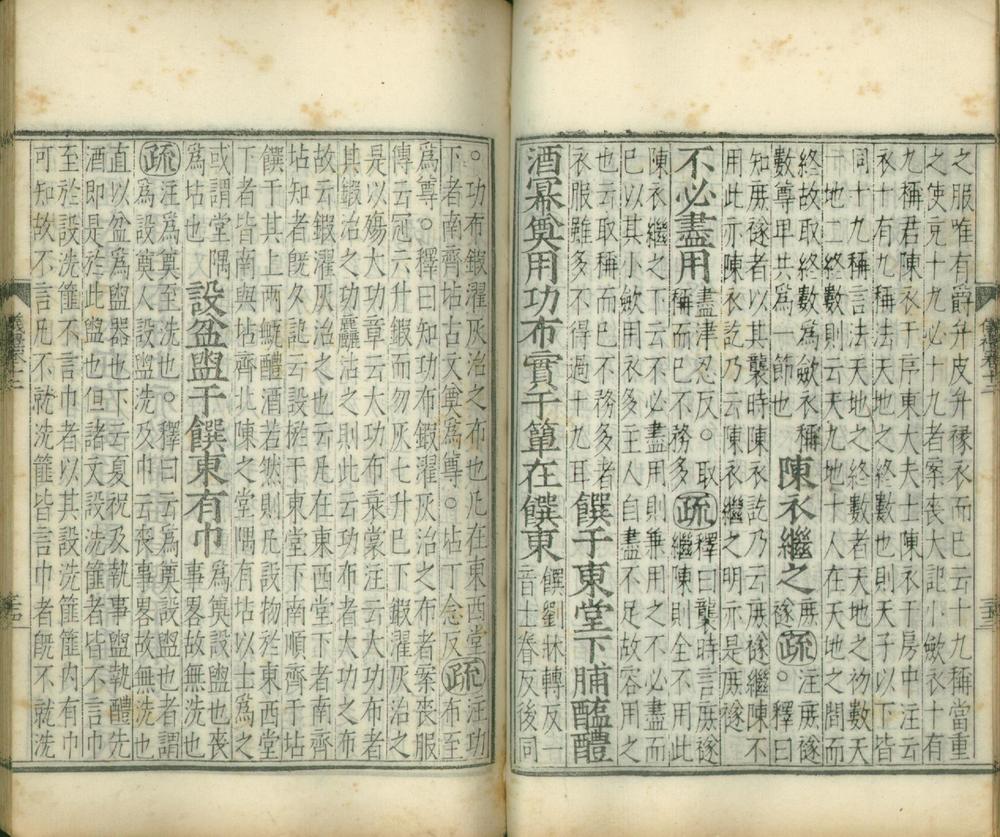 之服唯有爵弁皮弁褖衣而已云十九稱當重
之使充十九必十九者案喪大記小斂衣十有
九稱君陳衣于序東大夫士陳衣于房中注云
衣十有九稱法天地之終數也則天子以下皆
同十九稱言法天地之終數者天地之初數天
一地二終數則云天九地十人在天地之間而
終故取終數爲斂衣稱
數尊卑共爲一節也
陳衣繼之
庶
襚。
疏
注庶襚
。釋曰
知庶襚者以其襲時陳衣訖乃云庶襚繼陳不
用此亦陳衣訖乃云陳衣繼之明亦是庶襚
不必盡用
盡津忍反。取
稱而已不務多
疏
釋曰襲時言庶襚
繼陳則全不用此
陳衣繼之下云不必盡用則兼用之不必盡而
已以其小斂用衣多主人自盡不足故容用之
也云取稱而已不務多者
衣服雖多不得過十九耳
饌于東堂下脯醢醴
酒冪奠用功布實于簞在饌東
饌劉牀轉反一
音士眷反後同
。功布鍛濯灰治之布也凡在東西堂
下者南齊坫古文奠爲尊。坫丁念反
疏
注功
布至
爲尊。釋曰知功布鍛濯灰治之布者案喪服
傳云冠六升鍛而勿灰七升已下鍛濯灰治之
是以殤大功章云大功布衰裳注云大功布者
其鍛治之功麤沽之則此云功布者大功之布
故云鍛濯灰治之也云凡在東西堂下者南齊
坫知者既夕記云設棜于東堂下南順齊于坫
饌于其上兩甒醴酒若然則凡設物於東西堂
下者皆南與坫齊北陳之堂隅有坫以土爲之
或謂堂隅
爲坫也
設盆盥于饌東有巾
爲奠設盥也喪
事畧故無洗也
疏
注爲奠至洗也。釋曰云爲奠設盥也者謂
爲設奠人設盥洗及巾云喪事畧故無洗也
直以盆爲盥器也下云夏祝及執事盥執醴先
酒即是於此盥也但諸文設洗篚者皆不言巾
至於設洗篚不言巾者以其設洗篚篚内有巾
可知故不言凡不就洗篚皆言巾者既不就洗